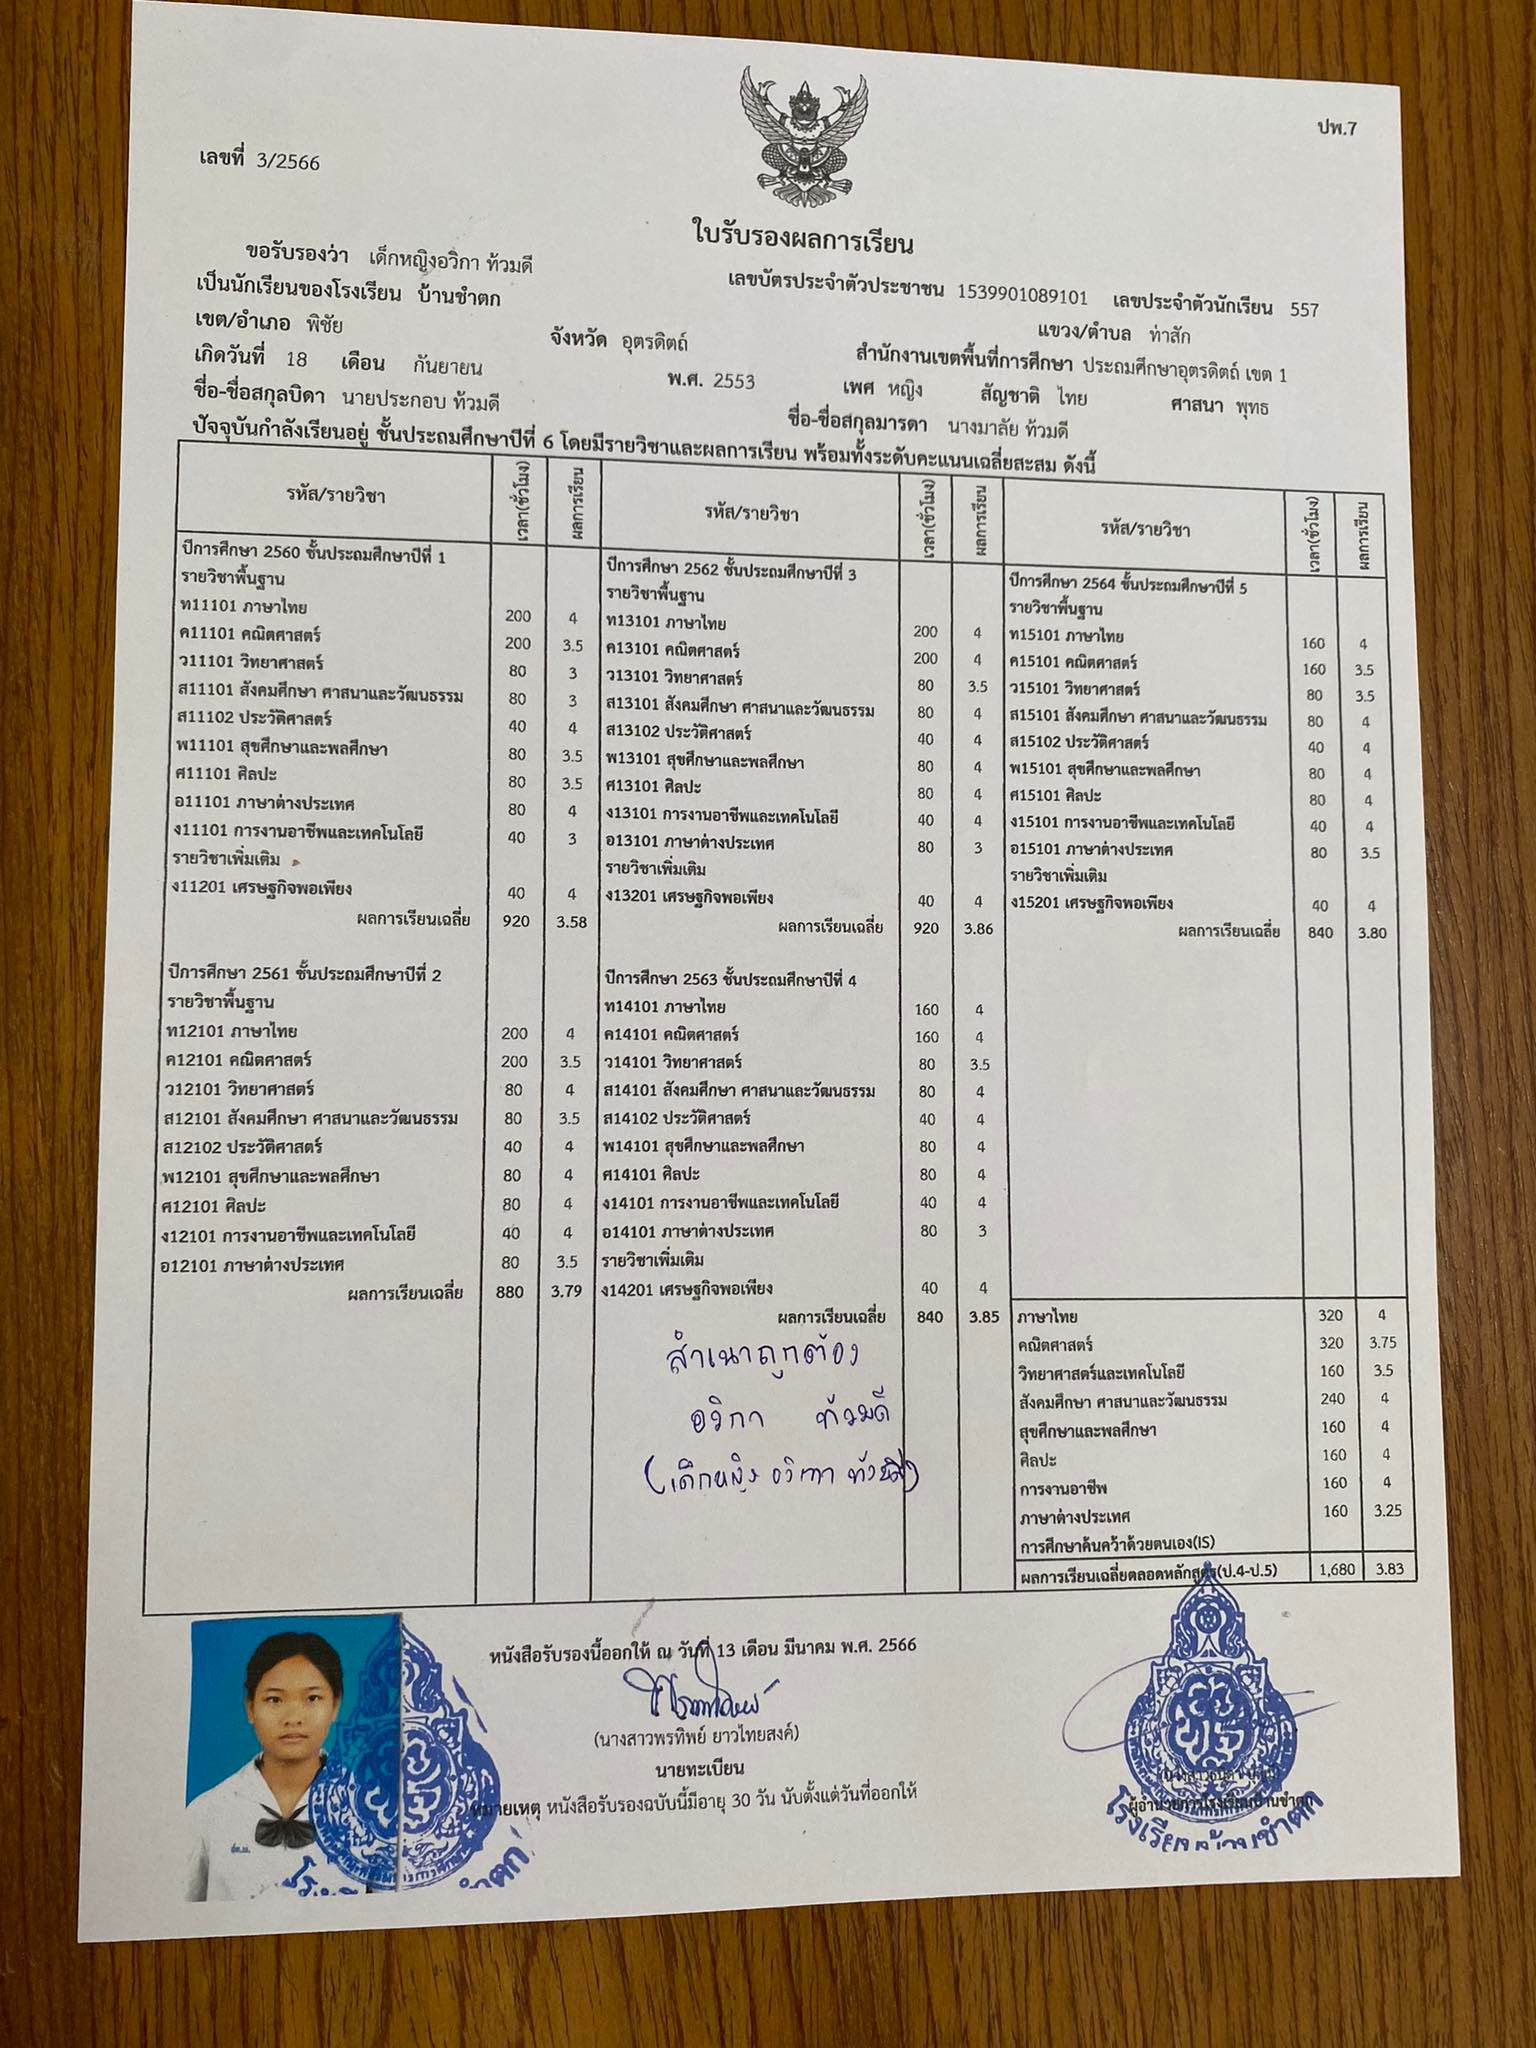 ปพ.7
เลขที่ 3/2566
ใบรับรองผลการเรียน
ขอรับรองว่า เด็กหญิงอวิกา ท้วมดี เลขบัตรประจำตัวประชาชน 1539901089101 เลขประจำตัวนักเรียน 557
เป็นนักเรียนของโรงเรียน บ้านชำตก แขวง/ตำบล ท่าสัก
เขต/อำเภอ พิชัย จังหวัด อุตรดิตถ์ สำนักงานเขตพื้นที่การศึกษา ประถมศึกษาอุตรดิตถ์ เขต 1
เกิดวันที่ 18 เดือน กันยายน พ.ศ. 2553 เพศ หญิง สัญชาติ ไทย ศาสนา พุทธ
ชื่อ-ชื่อสกุลบิดา นายประกอบ ท้วมดี ชื่อ-ชื่อสกุลมารดา นางมาลัย ท้วมดี
ปัจจุบันกำลังเรียนอยู่ ชั้นประถมศึกษาปีที่ 6 โดยมีรายวิชาและผลการเรียน พร้อมทั้งระดับคะแนนเฉลี่ยสะสม ดังนี้
รหัส/รายวิชา เวลา(ชั่วโมง) ผลการเรียน
ปีการศึกษา 2560 ชั้นประถมศึกษาปีที่ 1
รายวิชาพื้นฐาน
ท11101 ภาษาไทย 200 4
ค11101 คณิตศาสตร์ 200 3.5
ว11101 วิทยาศาสตร์ 80 3
ส11101 สังคมศึกษา ศาสนาและวัฒนธรรม 80 3
ส11102 ประวัติศาสตร์ 40 4
พ11101 สุขศึกษาและพลศึกษา 80 3.5
ศ11101 ศิลปะ 80 3.5
อ11101 ภาษาต่างประเทศ 80 4
ง11101 การงานอาชีพและเทคโนโลยี 40 3
รายวิชาเพิ่มเติม
ง11201 เศรษฐกิจพอเพียง 40 4
ผลการเรียนเฉลี่ย 920 3.58
ปีการศึกษา 2561 ชั้นประถมศึกษาปีที่ 2
รายวิชาพื้นฐาน
ท12101 ภาษาไทย 200 4
ค12101 คณิตศาสตร์ 200 3.5
ว12101 วิทยาศาสตร์ 80 4
ส12101 สังคมศึกษา ศาสนาและวัฒนธรรม 80 3.5
ส12102 ประวัติศาสตร์ 40 4
พ12101 สุขศึกษาและพลศึกษา 80 4
ศ12101 ศิลปะ 80 4
ง12101 การงานอาชีพและเทคโนโลยี 40 4
อ12101 ภาษาต่างประเทศ 80 3.5
ผลการเรียนเฉลี่ย 880 3.79
รหัส/รายวิชา เวลา(ชั่วโมง) ผลการเรียน
ปีการศึกษา 2562 ชั้นประถมศึกษาปีที่ 3
รายวิชาพื้นฐาน
ท13101 ภาษาไทย 200 4
ค13101 คณิตศาสตร์ 200 4
ว13101 วิทยาศาสตร์ 80 3.5
ส13101 สังคมศึกษา ศาสนาและวัฒนธรรม 80 4
ส13102 ประวัติศาสตร์ 40 4
พ13101 สุขศึกษาและพลศึกษา 80 4
ศ13101 ศิลปะ 80 4
ง13101 การงานอาชีพและเทคโนโลยี 40 4
อ13101 ภาษาต่างประเทศ 80 3
รายวิชาเพิ่มเติม
ง13201 เศรษฐกิจพอเพียง 40 4
ผลการเรียนเฉลี่ย 920 3.86
ปีการศึกษา 2563 ชั้นประถมศึกษาปีที่ 4
ท14101 ภาษาไทย 160 4
ค14101 คณิตศาสตร์ 160 4
ว14101 วิทยาศาสตร์ 80 3.5
ส14101 สังคมศึกษา ศาสนาและวัฒนธรรม 80 4
ส14102 ประวัติศาสตร์ 40 4
พ14101 สุขศึกษาและพลศึกษา 80 4
ศ14101 ศิลปะ 80 4
ง14101 การงานอาชีพและเทคโนโลยี 40 4
อ14101 ภาษาต่างประเทศ 80 3
รายวิชาเพิ่มเติม
ง14201 เศรษฐกิจพอเพียง 40 4
ผลการเรียนเฉลี่ย 840 3.85
สำเนาถูกต้อง
อวิกา ท้วมดี
(เด็กหญิง อวิกา ท้วมดี)
รหัส/รายวิชา เวลา(ชั่วโมง) ผลการเรียน
ปีการศึกษา 2564 ชั้นประถมศึกษาปีที่ 5
รายวิชาพื้นฐาน
ท15101 ภาษาไทย 160 4
ค15101 คณิตศาสตร์ 160 3.5
ว15101 วิทยาศาสตร์ 80 3.5
ส15101 สังคมศึกษา ศาสนาและวัฒนธรรม 80 4
ส15102 ประวัติศาสตร์ 40 4
พ15101 สุขศึกษาและพลศึกษา 80 4
ศ15101 ศิลปะ 80 4
ง15101 การงานอาชีพและเทคโนโลยี 40 4
อ15101 ภาษาต่างประเทศ 80 3.5
รายวิชาเพิ่มเติม
ง15201 เศรษฐกิจพอเพียง 40 4
ผลการเรียนเฉลี่ย 840 3.80
ภาษาไทย 320 4
คณิตศาสตร์ 320 3.75
วิทยาศาสตร์และเทคโนโลยี 160 3.5
สังคมศึกษา ศาสนาและวัฒนธรรม 240 4
สุขศึกษาและพลศึกษา 160 4
ศิลปะ 160 4
การงานอาชีพ 160 4
ภาษาต่างประเทศ 160 3.25
การศึกษาค้นคว้าด้วยตนเอง(IS)
ผลการเรียนเฉลี่ยตลอดหลักสูตร(ป.4-ป.5) 1,680 3.83
หนังสือรับรองนี้ออกให้ ณ วันที่ 13 เดือน มีนาคม พ.ศ. 2566
(นางสาวพรทิพย์ ยาวไทยสงค์)
นายทะเบียน
หมายเหตุ หนังสือรับรองฉบับนี้มีอายุ 30 วัน นับตั้งแต่วันที่ออกให้
ผู้อำนวยการโรงเรียนบ้านชำตก
โรงเรียนบ้านชำตก